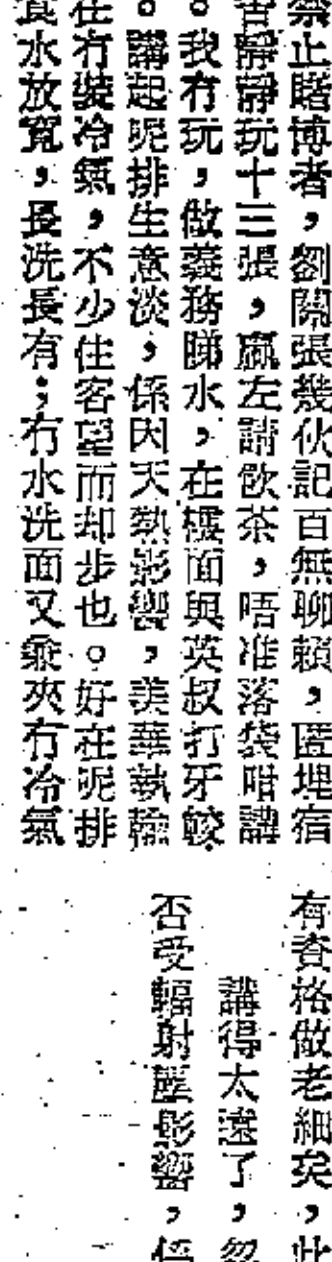 禁止賭博者，劉關張幾伙記百無聊賴，匿埋宿
舍靜靜玩十三張，贏左請飲茶，唔准落袋咁講
。我冇玩，做義務睇水，在樓面與英叔打牙較
。講起呢排生意淡，係因天熱影響，美華執輸
在冇裝冷氣，不少住客望而却步也。好在呢排
食水放寬，長洗長有；冇水洗面又兼夾冇冷氣
有資格做老細矣，此
講得太遠了，忽
否受輻射塵影響，